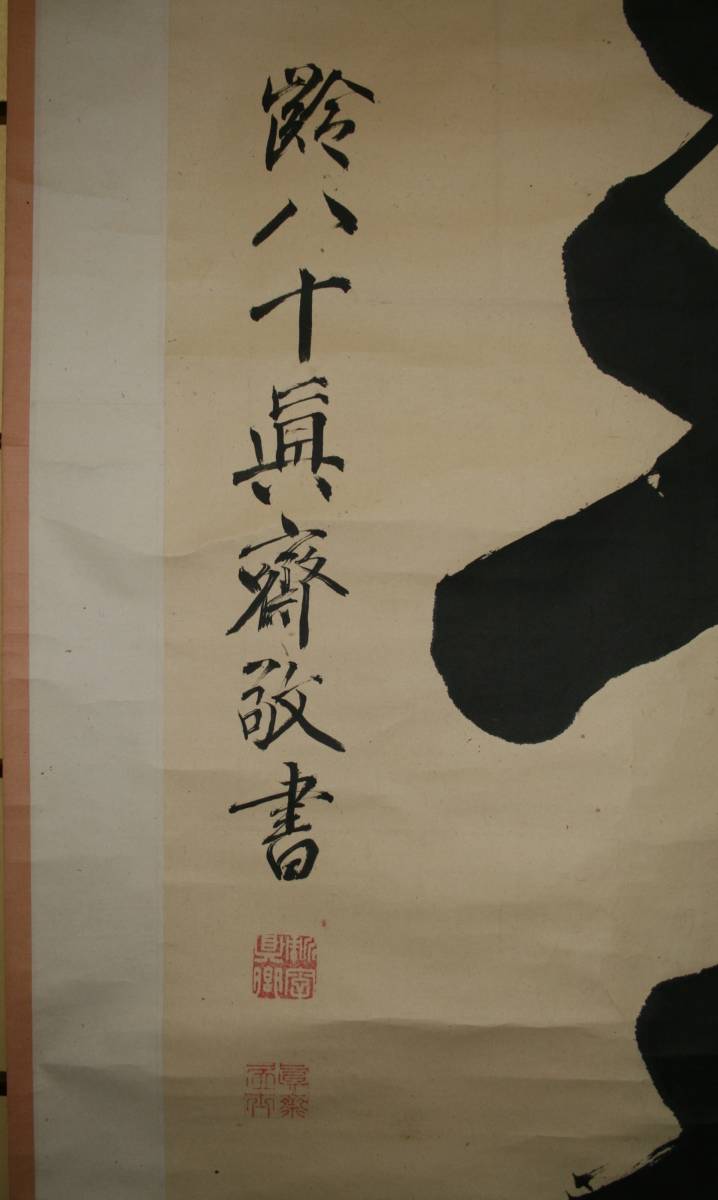 齡八十眞齋敬書